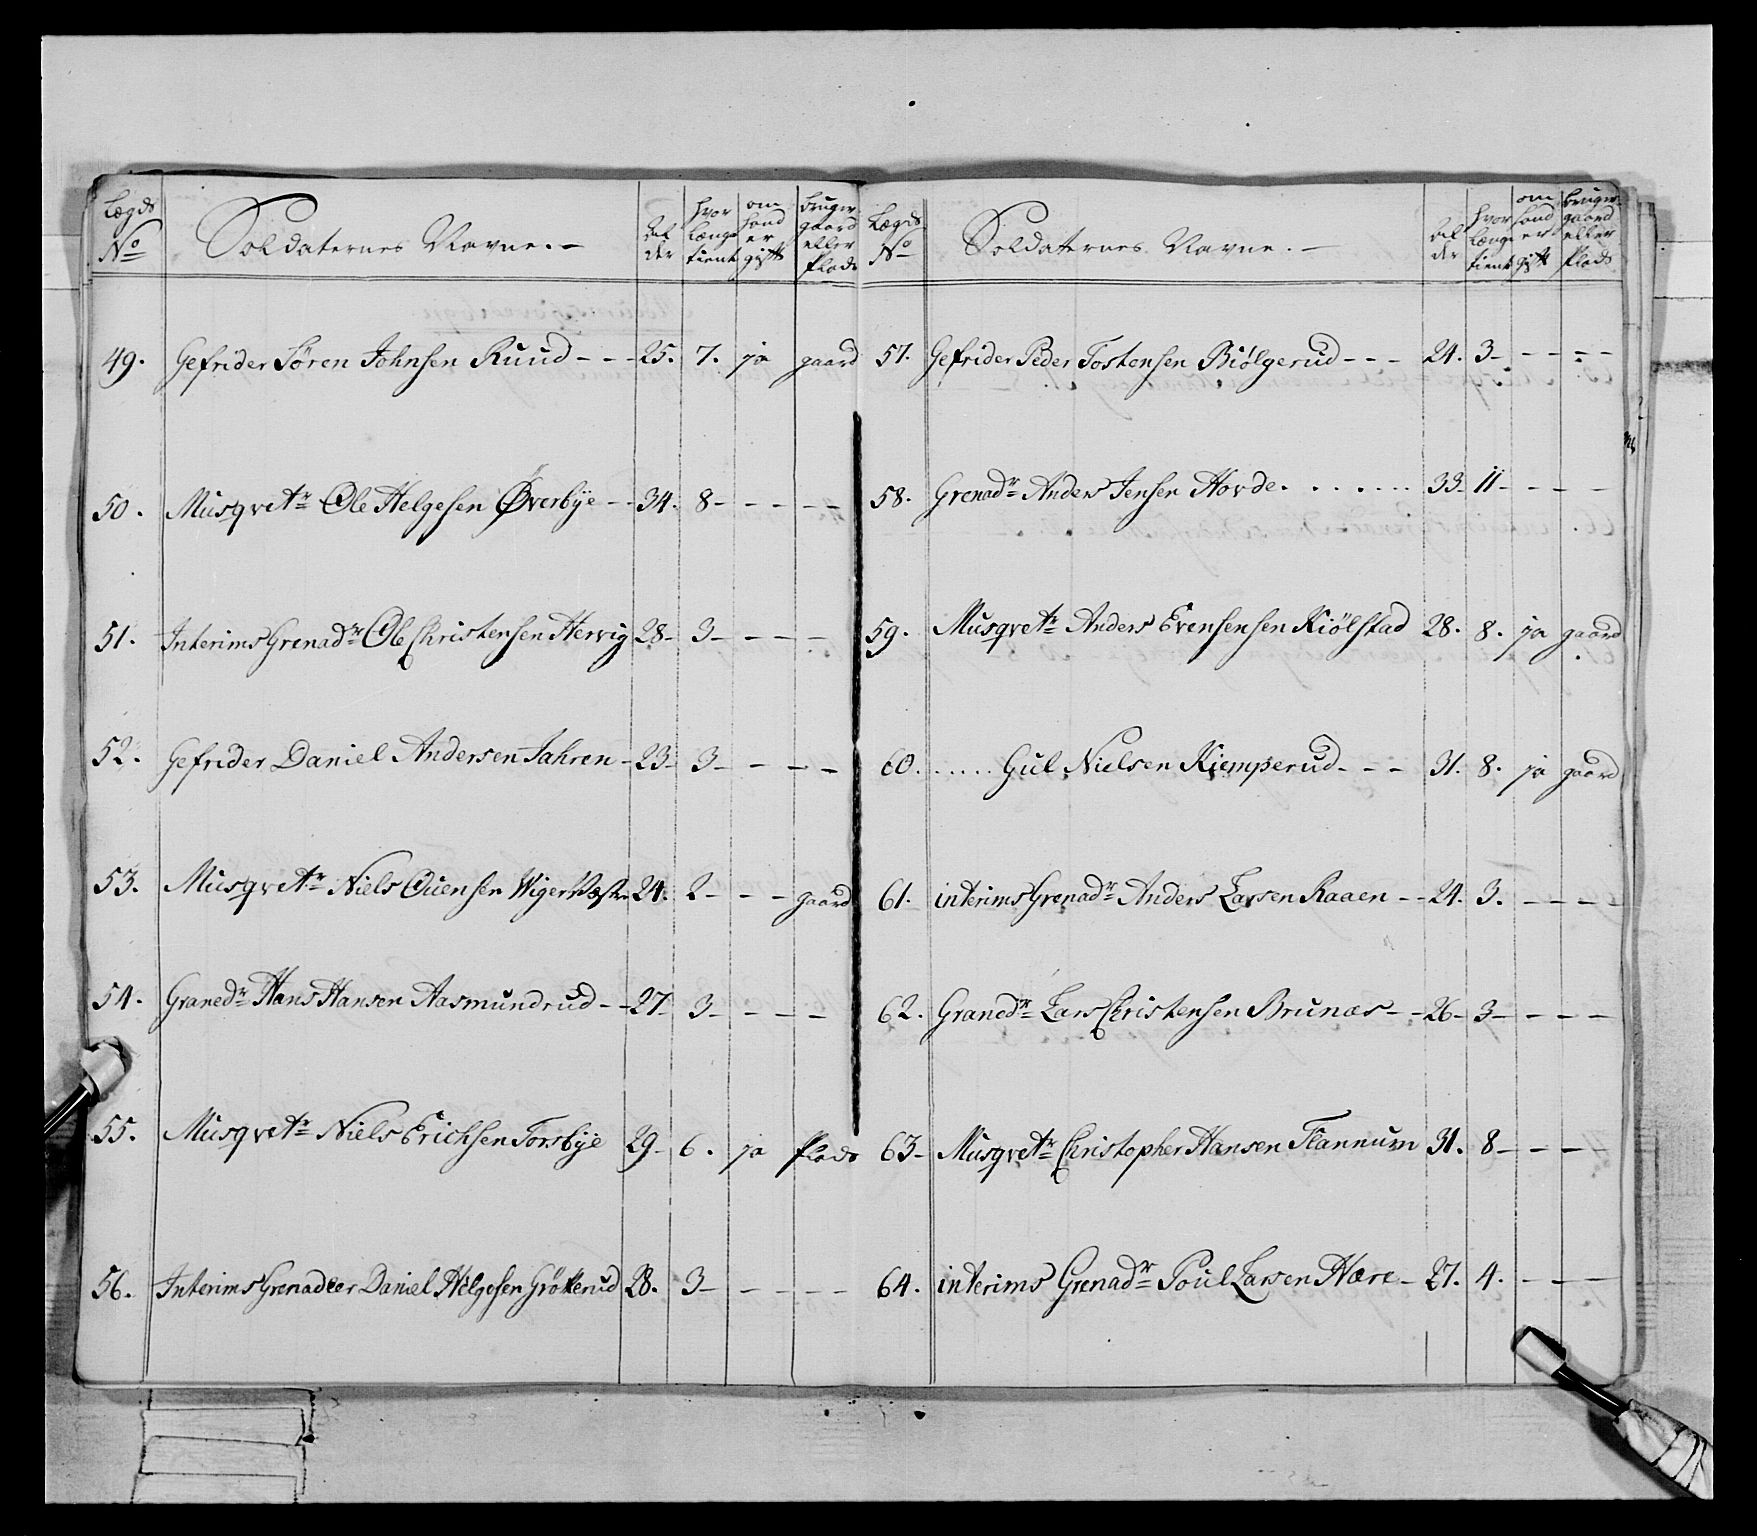 Lægds No Soldaternes Navne. Alder hvor længe tient om hand er gift bruger gaard eller plads
49. Gefrider Søren Johnsen Ruud - - - 25. 7. ja gaard
50. Musqvetr Ole Helgesen Øverbÿe - - 34. 8 - - - - -
51. Interims Grenadr Ole Christensen Hervig 28 - 3 - - - -
52. Gefrider Daniel Andersen Jahren - 23 - 3 - - - -
53. Musqvetr Niels Ouensen Wiger 24. 2 - - - gaard
54. Granedr Hans Hansen Aasmundrud - - 27 - 3 - - - -
55. Musqvetr Niels Erichsen Torsbÿe 29 - 6. ja plads
56. Interims Grenadeer Daniel Helgesen Grötterud 28. 3 - - - - -
Lægds No Soldaternes Navne. Alder hvor længe tient om hand er gift bruger gaard eller plads
57. Gefrider Peder Tostensen Biölgerud - - - 24. 3 - - - - -
58. Grenadr Anders Jensen Hovde. . . . . . . 33 - 11 - - - -
59. Musqvetr Anders Evensensen Kiölstad 28. 8. ja gaard
60. . . . . . Gul Nielsen Kiemperud - - - 31. 8. ja gaard
61. interims Grenadr Anders Larsen Raaen - - 24. 3. - - - -
62. Granedr Lars Christensen Brunæs - - 26 - 3 - - - -
63 - Musqvetr Christopher Hansen Flannum 31. 8 - - - -
64. interims Grenadr Poul Larsen Hare - 27. 4. - - -